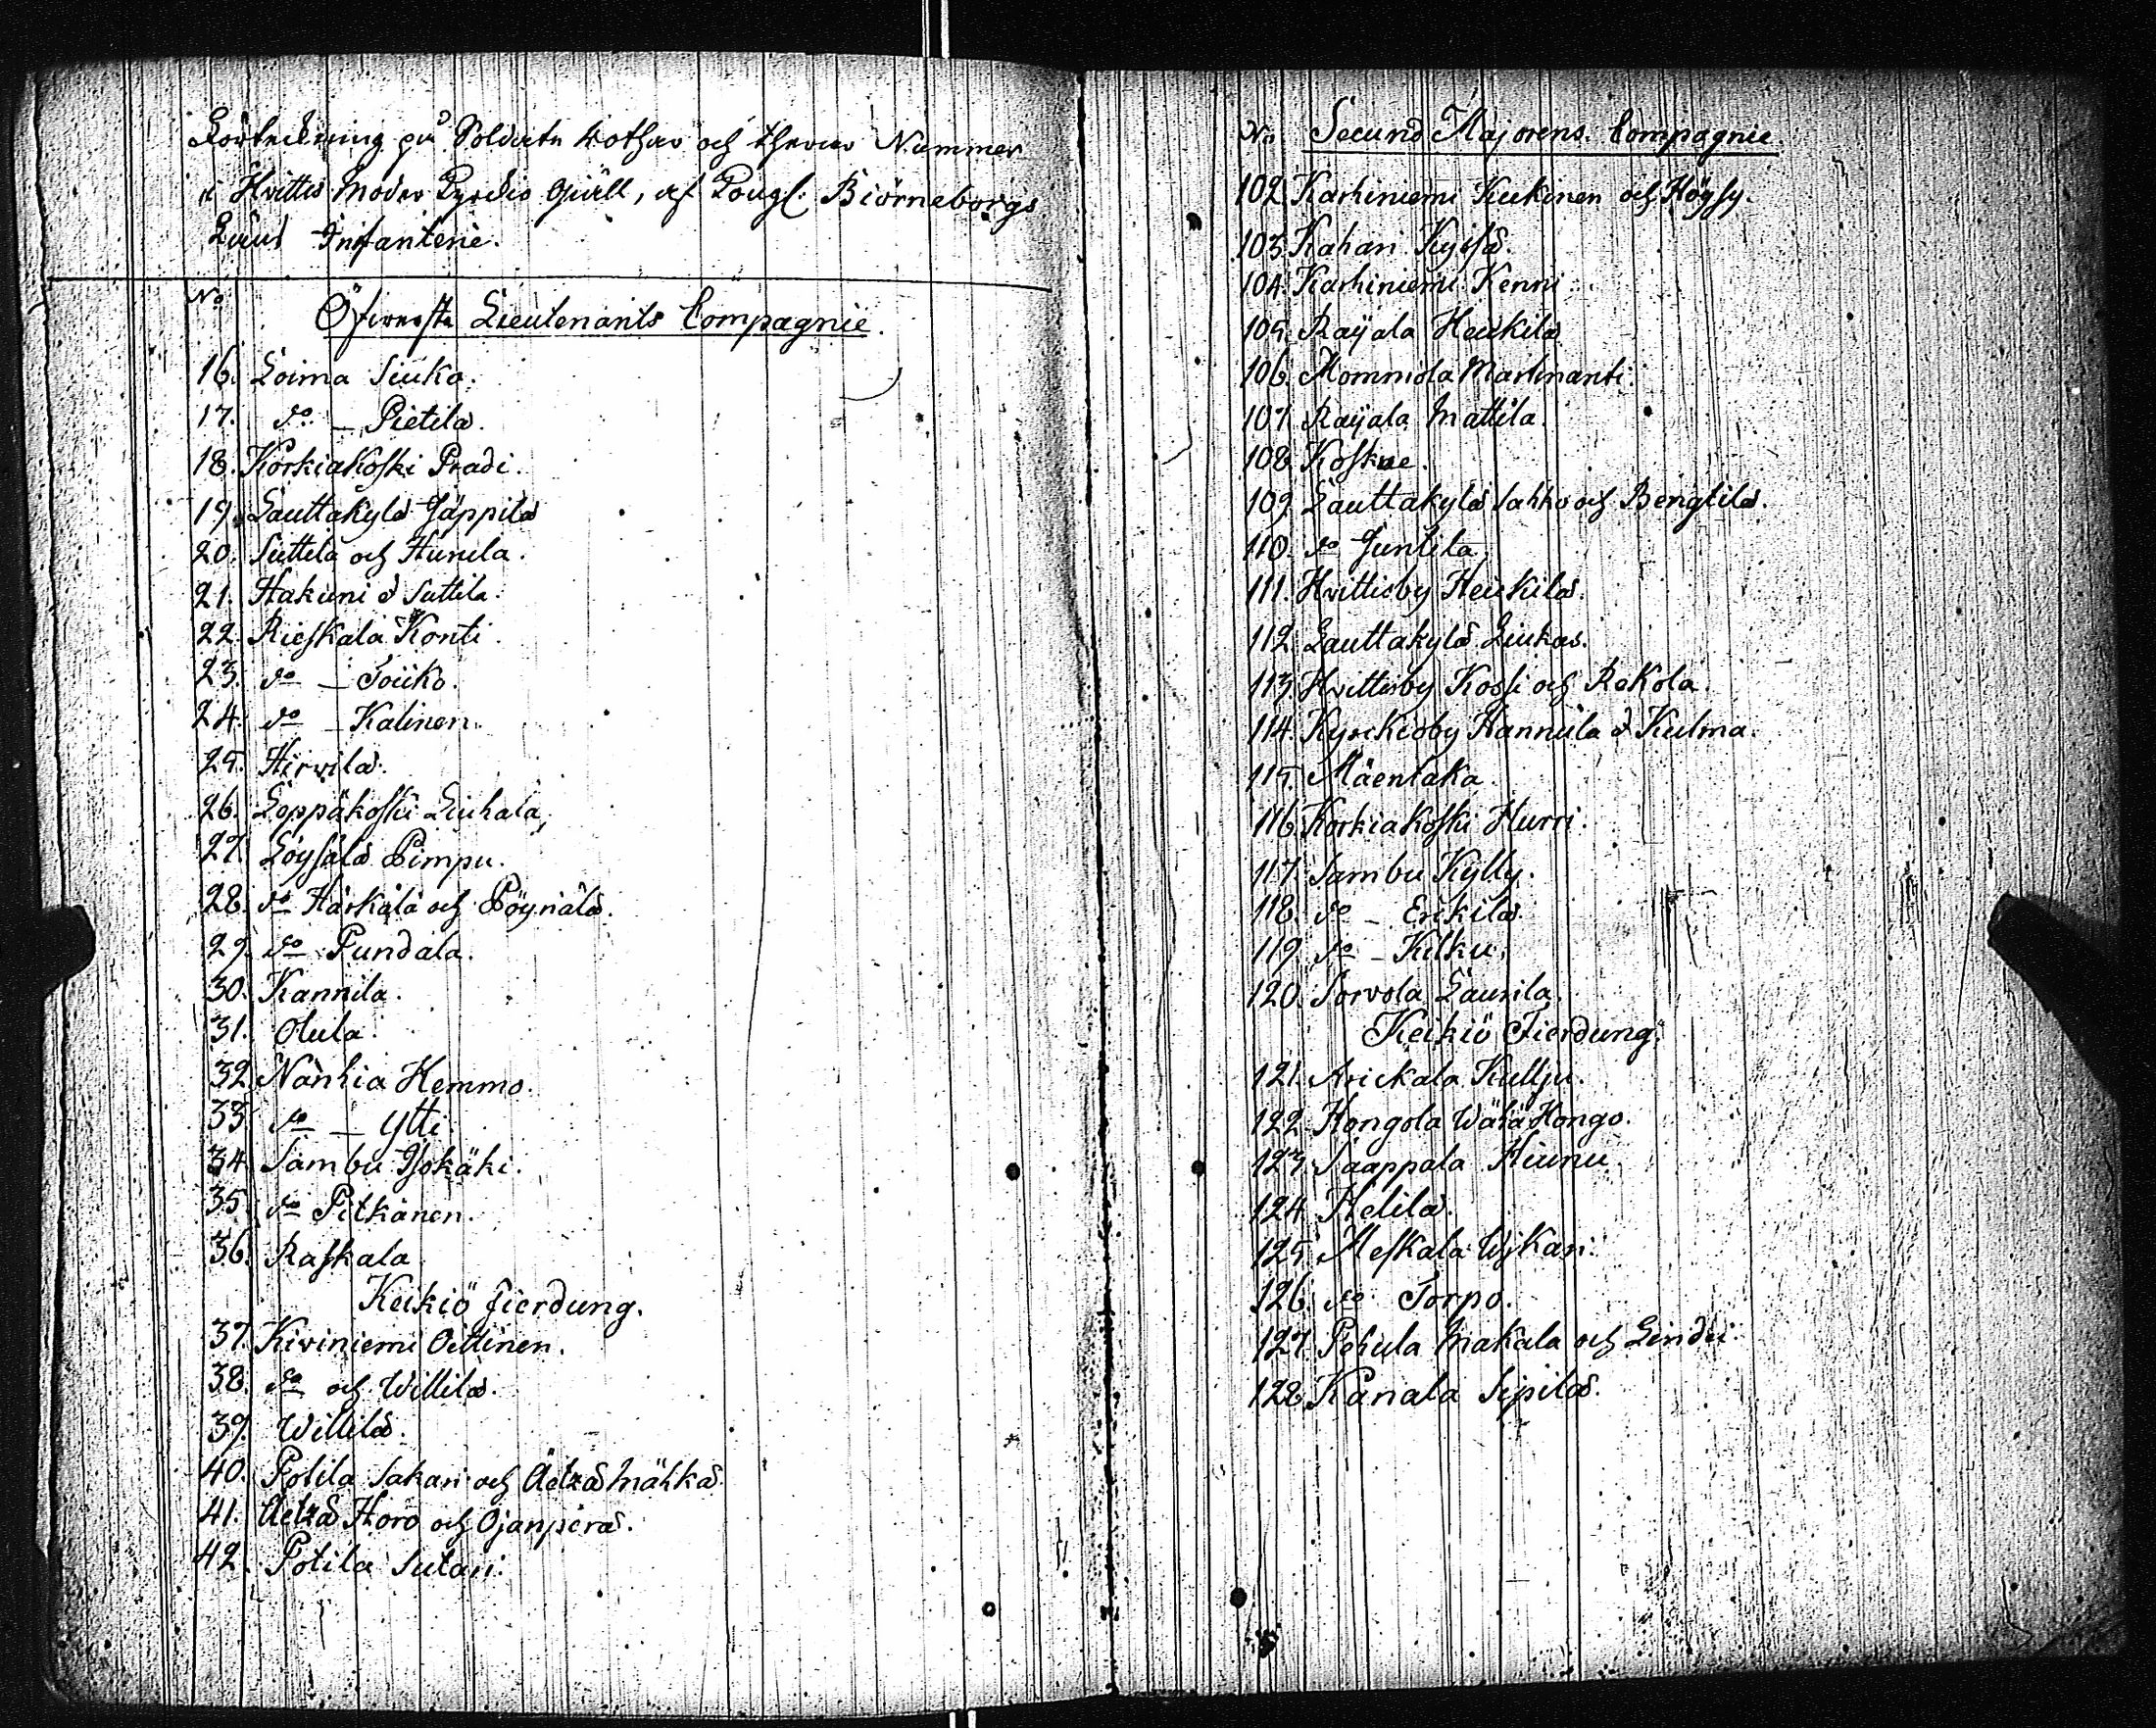 Förteckning på Soldate Rothar och theras Nummer
i Hvittis Moder Kyrckio Giäll, af Kongl: Biörneborgs
Läns Infanterie.
No
Öfwerste Lieutenants Compagnie.
16. Loima Siuko.
17. do – Pietilä.
18. Korkiakoski Pradi.
19. Lauttakylä Jäppilä
20. Suttila och Hunila.
21. Hakuni & Suttila.
22. Rieskala Konti.
23. do – Touko.
24. do – Kalinen.
25. Hirvilä.
26. Leppäkoski Liuhala,
27. Löysälä Pimpu.
28. do Härkälä och Pöynälä.
29. do Pundala.
30. Kannila.
31. Olula.
32. Nanhia Hemmo.
33. do – Ytti.
34. Sambu Isokäki.
35. do Pitkänen.
36. Raskala
Keikiö fierdung.
37. Kiviniemi Oittinen.
38. do och Willilä.
39. Willilä.
40. Potila Sakari och Äetzä Mähkä
41. Äetzä Horo och Ojanperä.
42. Potila Sutari.
No Secund Majorens Compagnie.
102. Karhiniemi Kukinen och Högsy.
103. Kahari Kyösä.
104. Karhiniemi Kenni.
105. Raijala Heickilä
106. Mommola Martinanti.
107. Raijala Mattila.
108. Koskue.
109. Lauttakylä Sahko och Bengtilä.
110. do Juntila,
111. Hvittisby Heickilä.
112. Lauttakylä Liukas.
113. Hvittisby Kossi och Rekola.
114. Kyrckioby Hannula & Kulma.
115. Mäentaka.
116. Korkiakoski Hurri.
117. Sambu Kylly.
118. do – Erikilä.
119. do – Kilku.
120. Sorvola Laurila.
Keikiö Fierdung.
121. Arickala Kullju.
122. Hongola Wähä Hongo.
123. Saappala Hiunu.
124. Helilä.
125. Meskala Wijkari.
126. do Torpo.
127. Pehula Makala och Lindu.
128. Kanala Sipilä.